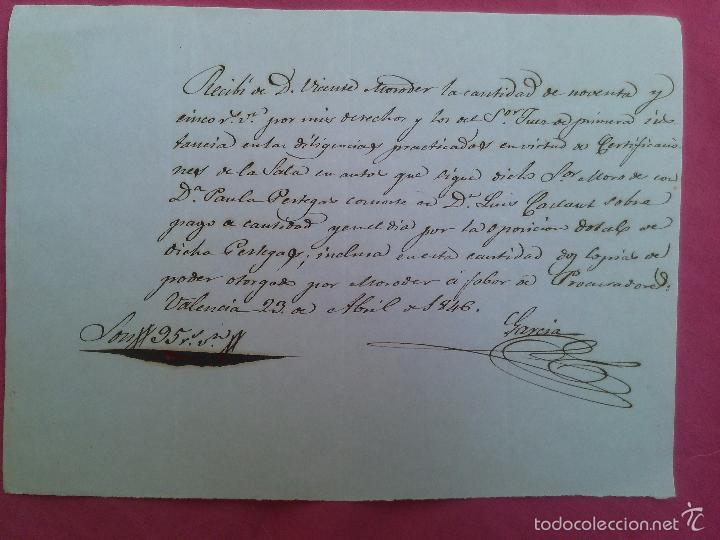 Recibí de D. Vicente Moroder la cantidad de noventa y
cinco rs. vn. por mis derechos y los del Sor. Juez de primera ins
tancia en las diligencias practicadas en virtud de Certificacio
nes de la Sala en autos que sigue dicho Sor. Moroder con
Da. Paula Pertegas consorte de Dn. Luis sobre
pago de cantidad y en el dia por la oposicion dotal de
dicha Pertegas, inclusa en esta cantidad dos copias de
poder otorgado por Moroder á fabor de Procuradores.
Valencia 23 de Abril de 1846.
Garcia
Son 95 rs. vn.
todocoleccion.net tc